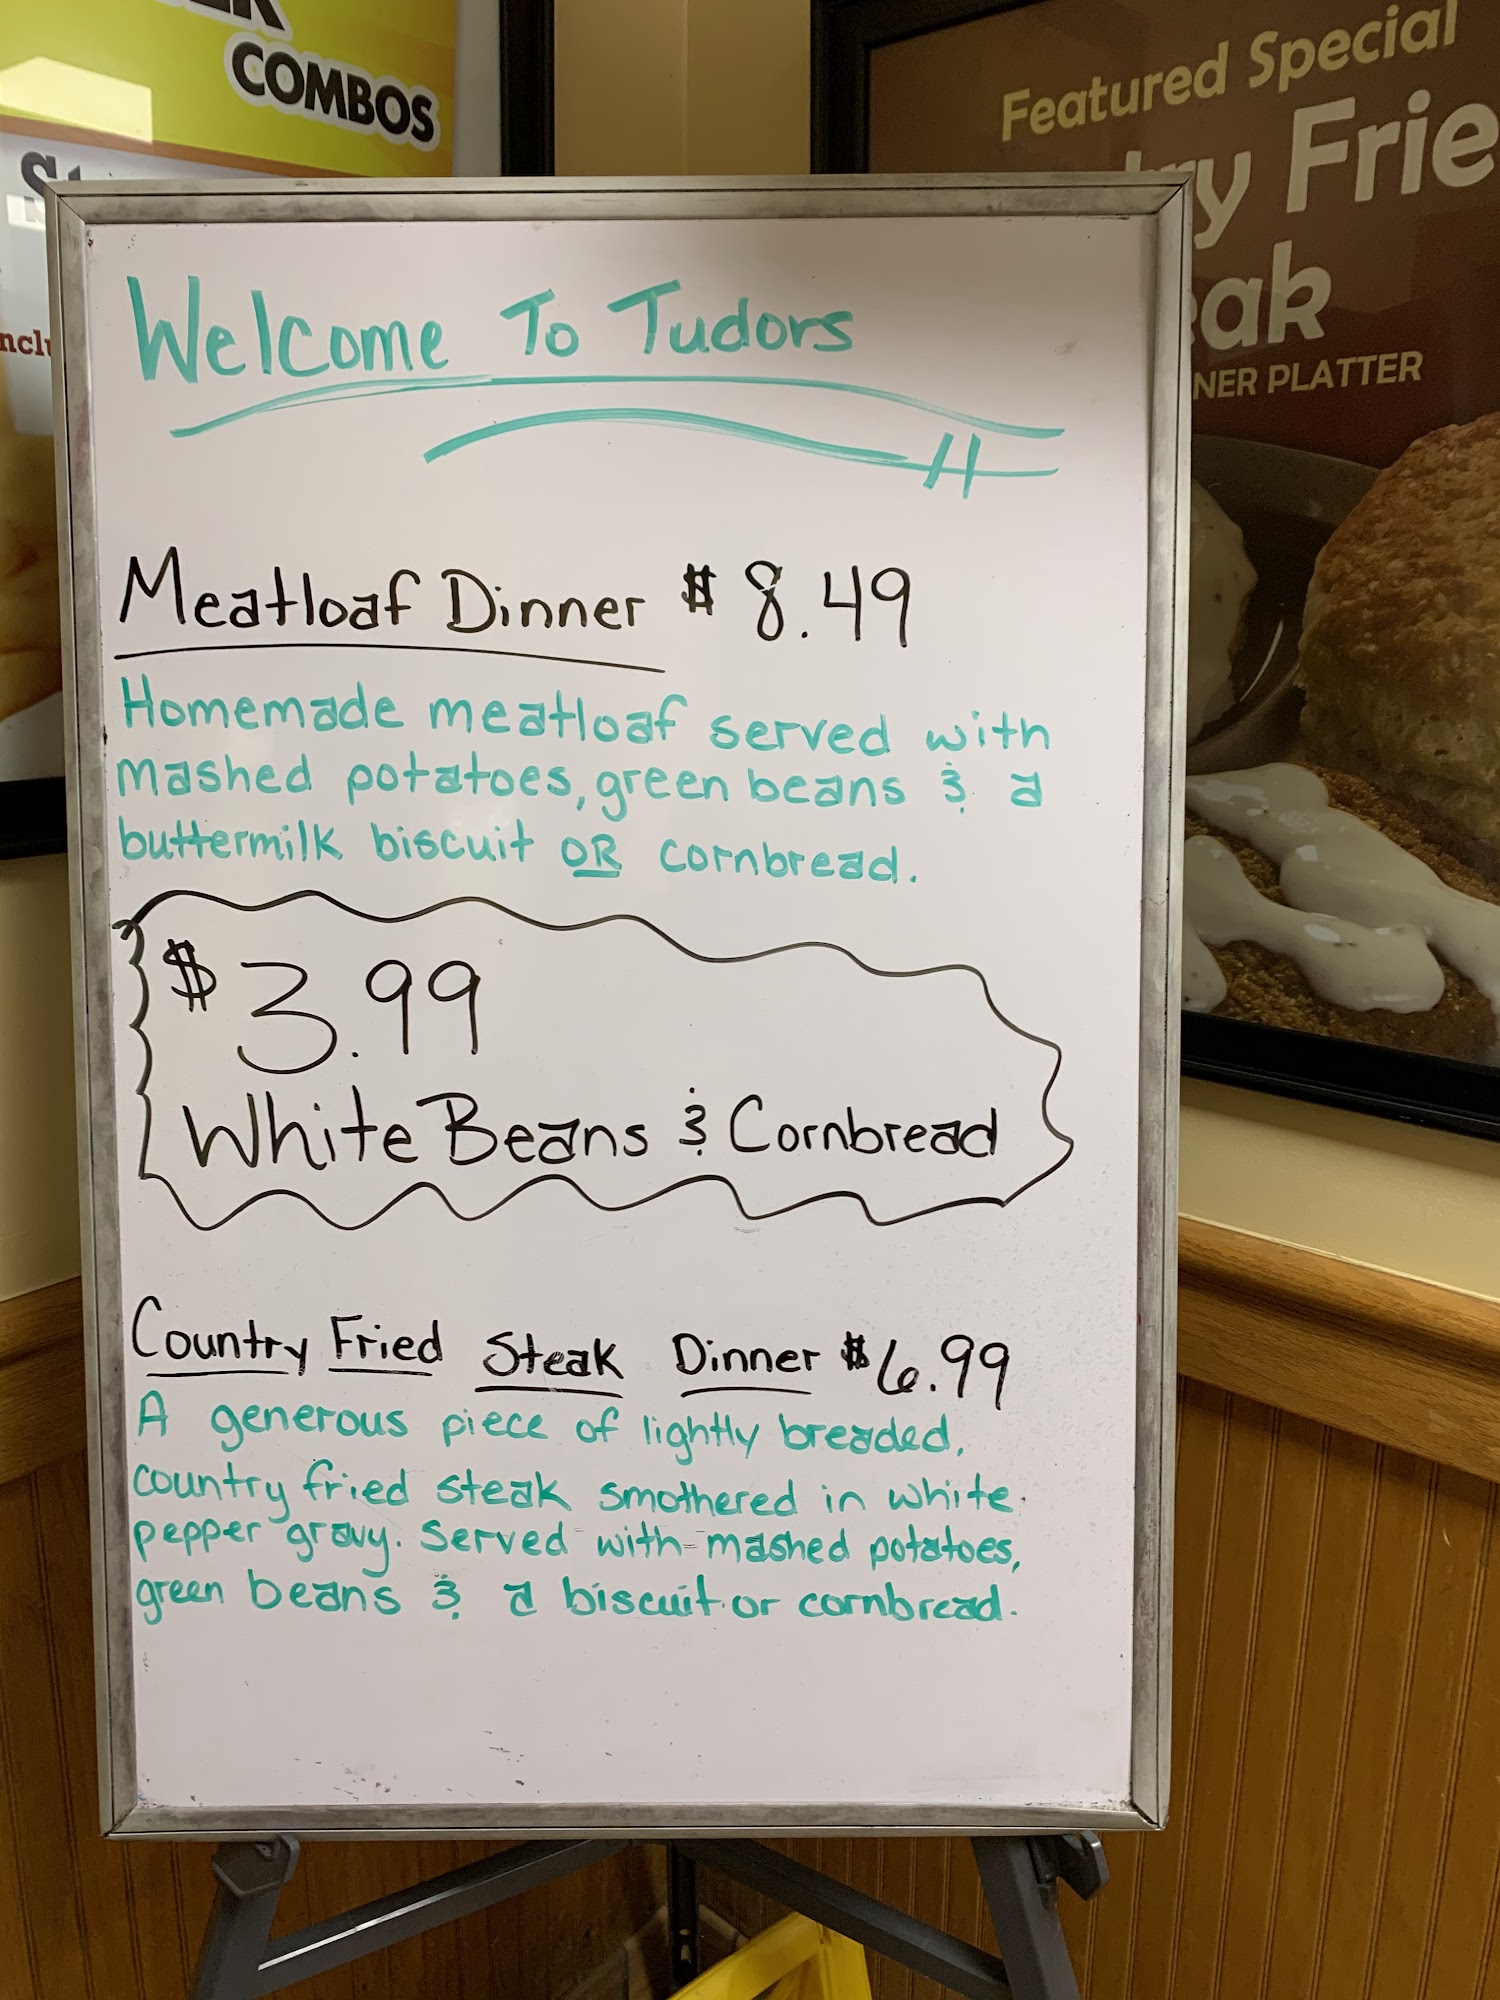 COMBOS
Featured Special
Welcome To Tudors
Meatloaf Dinner $8.49
Homemade meatloaf served with
mashed potatoes, green beans & a
buttermilk biscuit OR cornbread.
$3.99
White Beans & Cornbread
Country Fried Steak Dinner $6.99
A generous piece of lightly breaded,
country fried steak smothered in white
pepper gravy. Served with mashed potatoes,
green beans & a biscuit or cornbread.
PLATTER